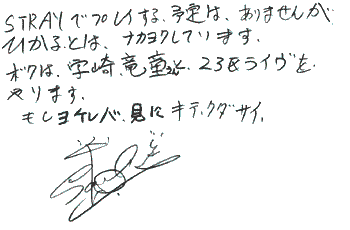 STRAYでプレイする、予定は、ありませんが
ひかるとは、ナカヨクしています。
ボクは、宇崎、竜童さんと、23日ライヴを
やります。
もしヨケレバ、見に キテ、クダサイ。